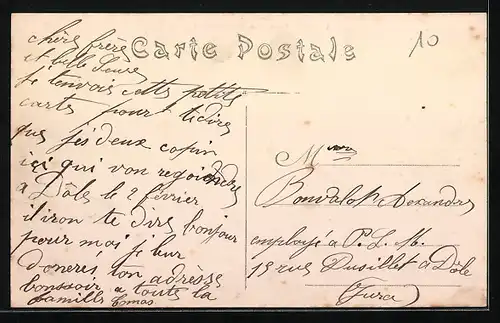 Carte Postale
10
chère frère
et belle Seure
je tenvois cette petite
carte pour te dire
que jei deux copin
içi qui von regoindre
a Dôle le 2 février
il iron te dire bonjour
pour moi je leur
donerés ton adrèsse
bonssoir a toute la
famille
M
Bonvalot Alexandre
employé a P. L. M.
15 rue Dusillet a Dôle
Jura